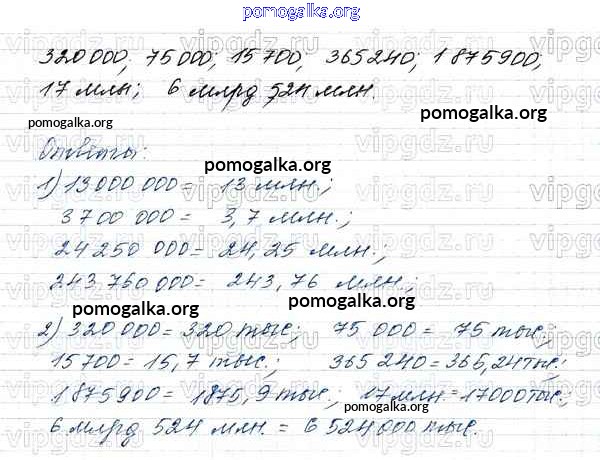 pomogalka.org
320 000; 75 000; 15 700; 365 240; 1 875 900;
17 млн; 6 млрд 524 млн.
pomogalka.org pomogalka.org
Ответы:
pomogalka.org
1) 13 000 000 = 13 млн.;
3 700 000 = 3,7 млн.;
24 250 000 = 24,25 млн.;
243 760 000 = 243,76 млн.;
pomogalka.org pomogalka.org
2) 320 000 = 320 тыс.; 75 000 = 75 тыс.;
15 700 = 15,7 тыс.; 365 240 = 365,24 тыс.;
1 875 900 = 1875,9 тыс.; 17 млн. = 17000 тыс.;
pomogalka.org
6 млрд 524 млн. = 6 524 000 тыс.